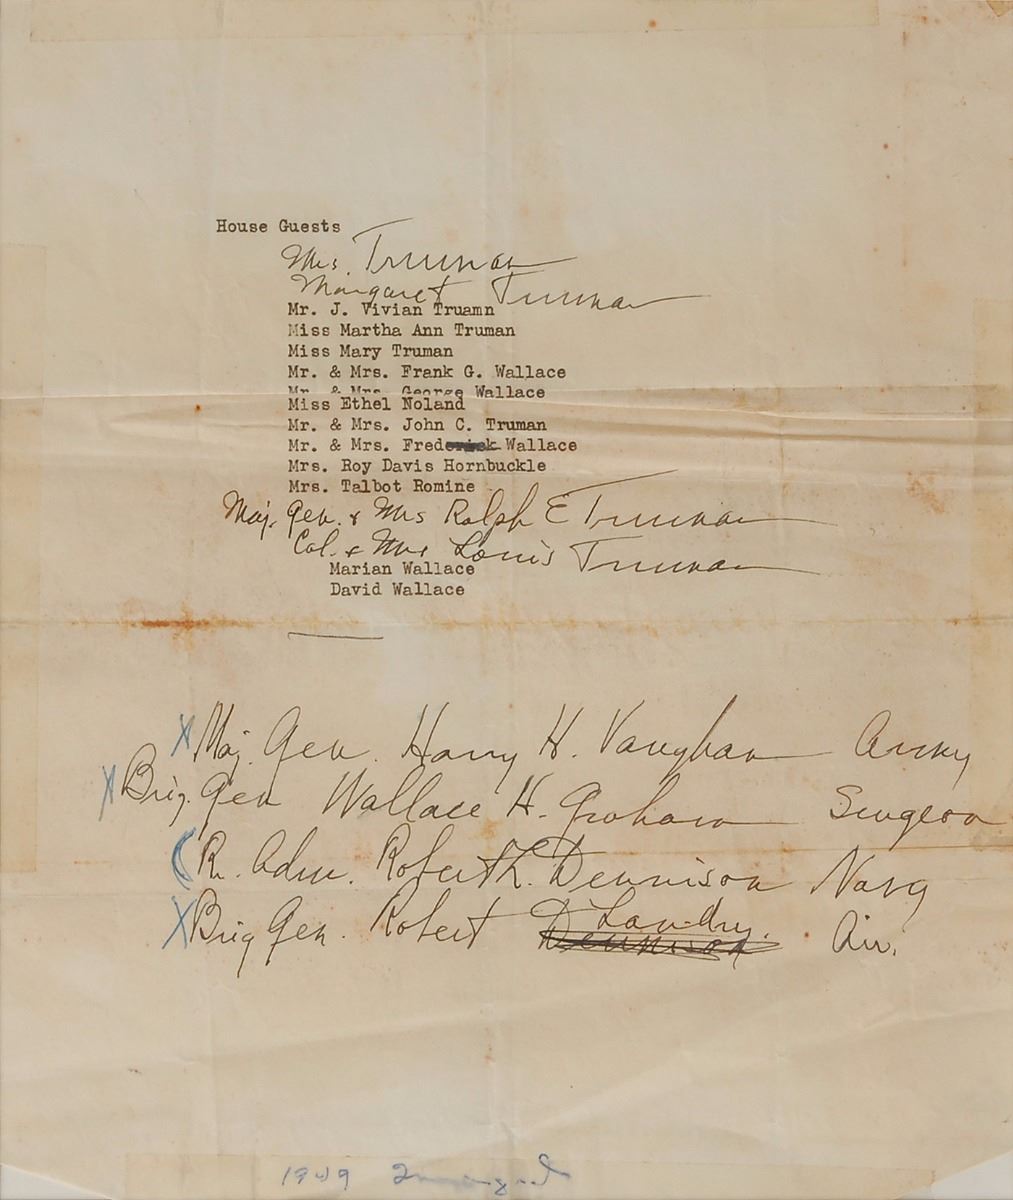 House Guests
Mrs. Truman
Margaret Truman
Mr. J. Vivian Truamn
Miss Martha Ann Truman
Miss Mary Truman
Mr. & Mrs. Frank G. Wallace
Mr. & Mrs. George Wallace
Miss Ethel Noland
Mr. & Mrs. John C. Truman
Mr. & Mrs. Frederick Wallace
Mrs. Roy Davis Hornbuckle
Mrs. Talbot Romine
Maj. Gen. & Mrs Ralph E Truman
Col. & Mrs Louis Truman
Marian Wallace
David Wallace
X Maj. Gen. Harry H. Vaughan Army
X Brig. Gen Wallace H. Graham Surgeon
( R. Adm. Robert L. Dennison Navy
X Brig Gen. Robert Dennison Landry. Air.
1949